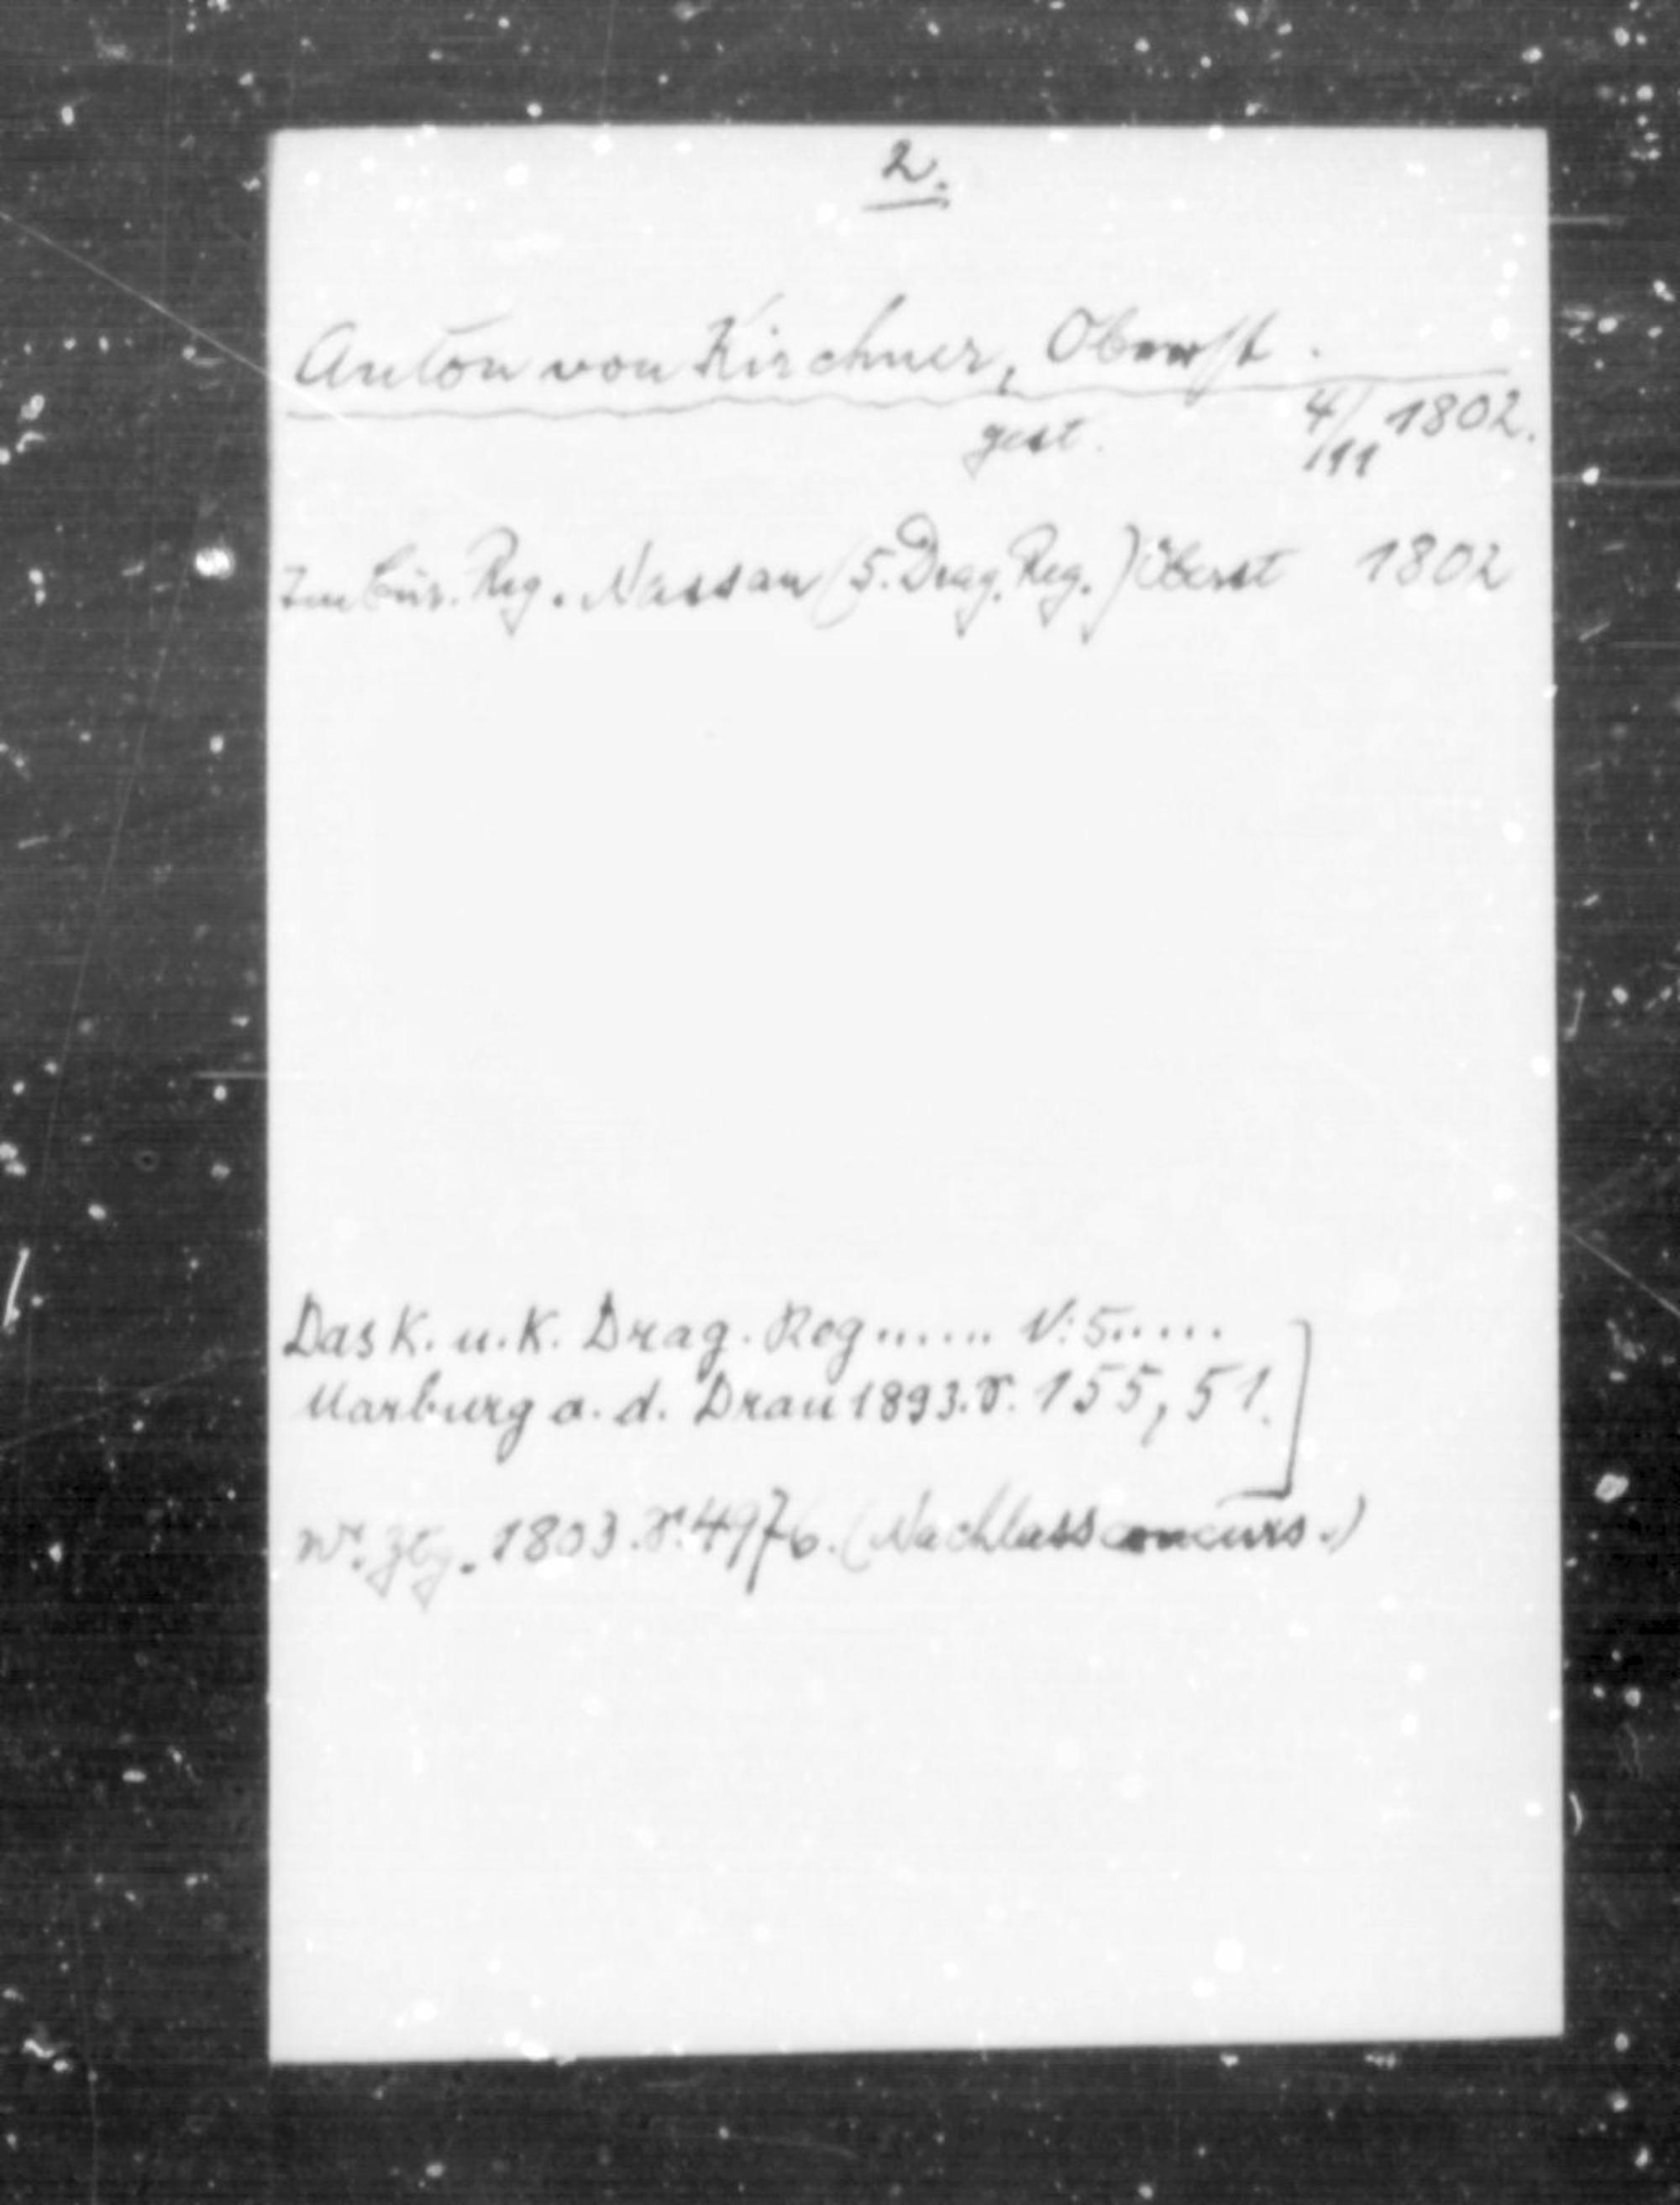 2.
Anton von Kirchner, Oberst.
gest. 4/11 1802.
Im Cür. Reg. Nassau (5. Drag. Reg.) Oberst 1802
Das K. u. K. Drag. Reg...... N: 5.....
Marburg a. d. Drau 1893. S. 155, 51.
Wr. Ztg. 1803. S. 4976. (Nachlassconcurs.)